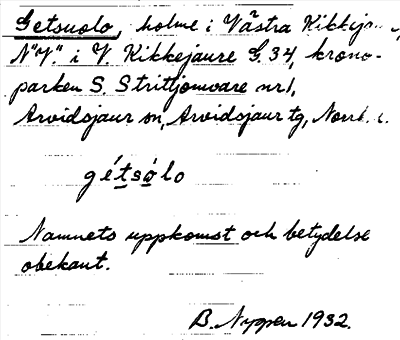 Getsuolo, holme i Västra
N"V." i V. Kikkejaure G. 34, krono-
parken S. Strittjomvare nr 1,
Arvidsjaur sn, Arvidsjaur tg,
gétsálo
Namnets uppkomst och betydelse
obekant.
B. Nygren 1932.